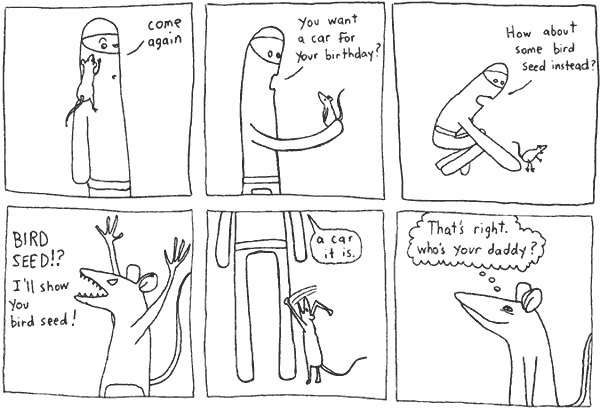 come
again
You want
a car for
your birthday?
How about
some bird
seed instead?
BIRD
SEED!?
I'll show
you
bird seed!
a car
it is.
That's right.
who's your daddy?